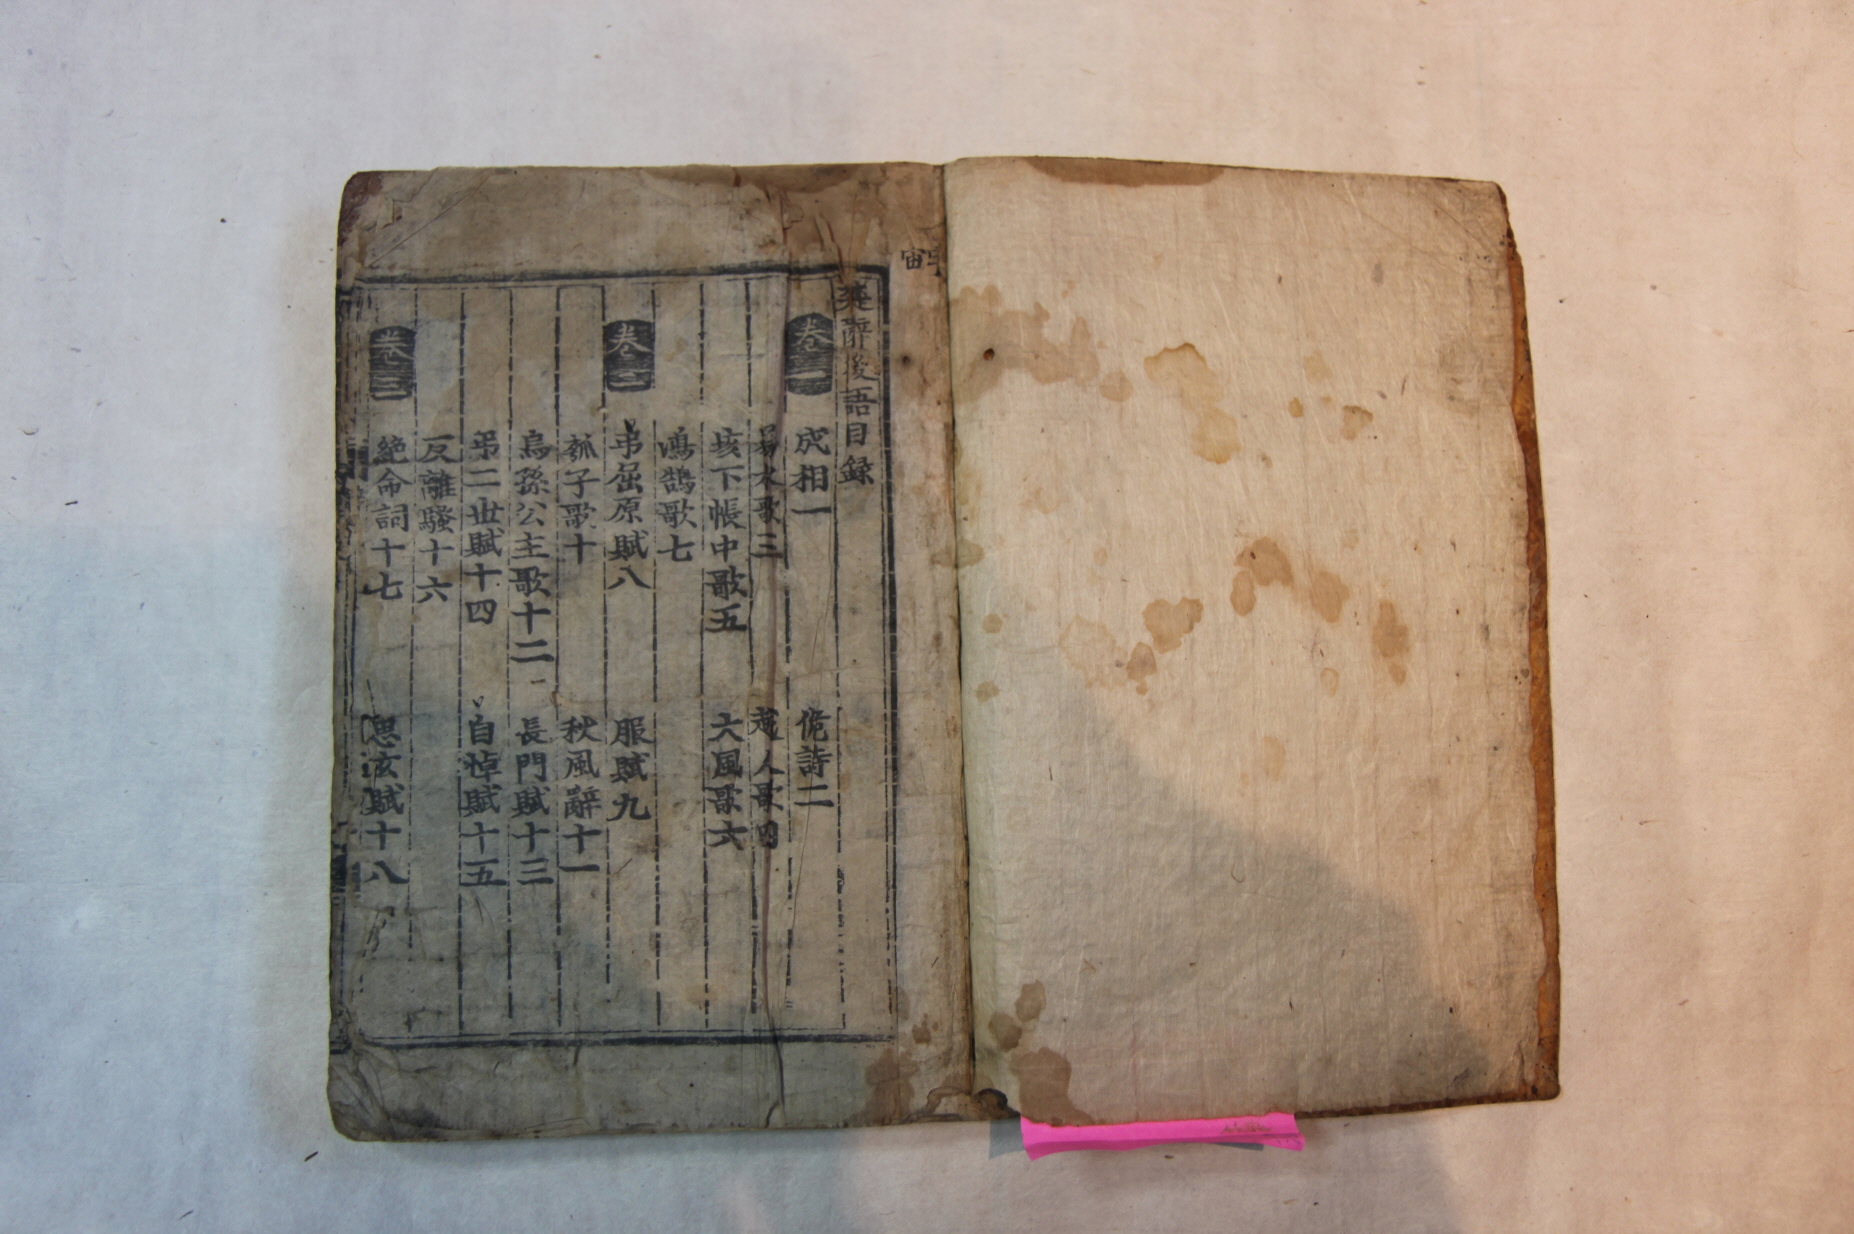 楚辭後語目録
卷一 成相一 佹詩二
易水歌三 越人歌四
垓下帳中歌五 大風歌六
鴻鵠歌七
卷二 弔屈原賦八 服賦九
瓠子歌十 秋風辭十一
烏孫公主歌十二 長門賦十三
弔二世賦十四 自悼賦十五
反離騷十六
卷三 絶命詞十七 思玄賦十八